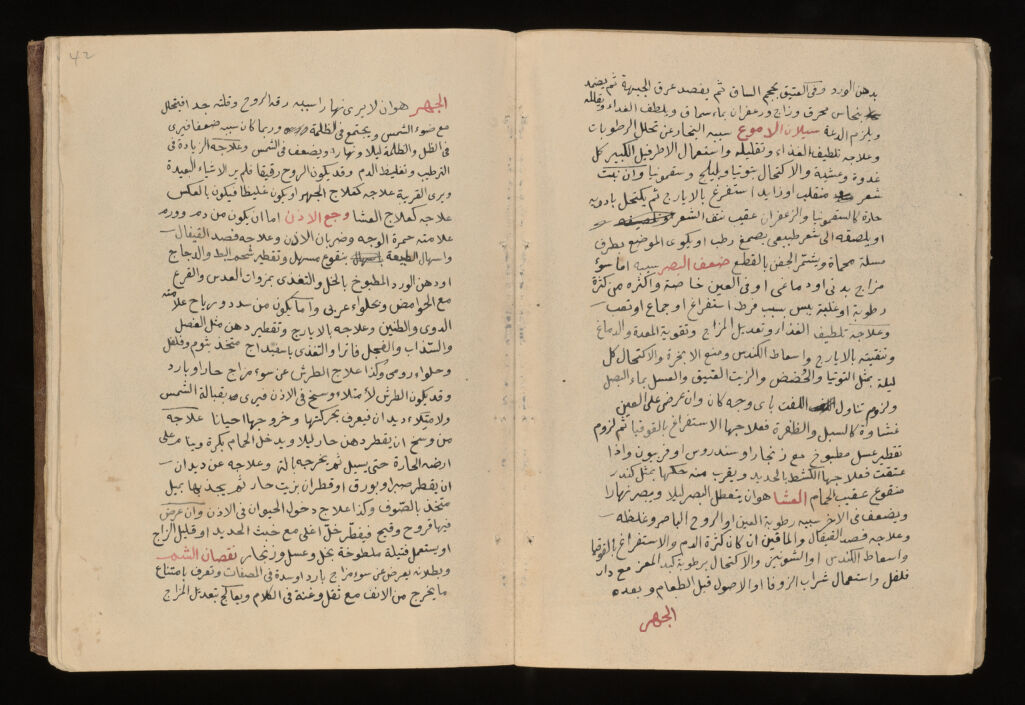 بدهن الورد وفى العتيق بحجم الساق ثم يفصد عرق الجبهة ثم يضمد
بنحاس محرق وزاج وزعفران بماء سماق ويلطف الغداء ويقلله
ويلزم الدعة سيلان الدموع سببه البخار عن تحلل الرطوبات
وعلاجه تلطيف الغذاء وتقليله واستعمال الاطريفل الكبير كل
غدوة وعشية والاكتحال بتوتيا وهليلج وسقمونيا وان نبت
شعر منقلب او زايد استفرغ بالايارج ثم يكتحل بادوية
حادة كالسقمونيا والزعفران عقيب نتف الشعر
او يلصقه الى شعر طبيعى بصمغ رطب او يكوى الموضع بطرف
مسلة محماة ويشمر الجفن بالقطع ضعف البصر سببه اما سوء
مزاج بدنى او دماغى او فى العين خاصة واكثره من كثرة
رطوبة او غلبة يبس بسبب فرط استفراغ او جماع او تعب
وعلاجه تلطيف الغذاء وتعديل المزاج وتقوية المعدة والدماغ
وتنقيته بالايارج واسعاط الكندس ومنع الابخرة والاكتحال كل
ليلة بمثل التوتيا والحضض والزيت العتيق والعسل بماء البصل
ولزوم تناول اللفت باى وجه كان وان عرض على العين
غشاوة كالسبل والظفرة فعلاجها الاستفراغ بالقوقيا ثم لزوم
تقطير عسل مطبوخ مع زنجار او سندروس او فربيون واذا
عتقت فعلاجها الكشط بالحديد ويقرب منه حكها بمثل كندر
منقوع عقيب الحمام العشا هو ان يتعطل البصر ليلا ويبصر نهارا
ويضعف فى الاخر سببه رطوبة العين او الروح الباصر وغلظه
وعلاجه فصد القيفال والماقين ان كان كثرة الدم والاستفراغ بالقوقيا
واسعاط الكندس او الشونيز والاكتحال برطوبة كبد المعز مع دار
فلفل واستعمال شراب الزوفا او الاصول قبل الطعام وبعده
الجهر
42
الجهر هو ان لا يرى نهارا سببه رقة الروح وقلته جدا فيتحلل
مع ضوء الشمس ويجتمع فى الظلمة وربما كان سببه ضعفا فيرى
فى الظل والظلمة ليلا ونهارا ويضعف فى الشمس وعلاجه الزيادة فى
الترطيب وتغليظ الدم وقد يكون الروح رقيقا فلم ير الاشياء البعيدة
ويرى القريبة علاجه كعلاج الجهر او يكون غليظا فيكون بالعكس
علاجه كعلاج العشا وجع الاذن اما ان يكون من دم وورم
علامته حمرة الوجه وضربان الاذن وعلاجه فصد القيفال
واسهال الطبيعة بنقوع مسهل وتقطير شحم البط والدجاج
او دهن الورد المطبوخ بالخل والتغذى بمزوات العدس والقرع
مع الحوامض وبحلواء عربى واما يكون من سدد ورياح علامته
الدوى والطنين وعلاجه بالايارج وتقطير دهن مثل الفصل
والسذاب والفجل فاترا والتغذى باسفيداج متخذ بثوم وفلفل
وحلواء رومى وكذا علاج الطرش عن سوء مزاج حار او بارد
وقد يكون الطرش لامتلاء وسخ فى الاذن فيرى بقبالة الشمس
ولامتلاء ديدان فيعرف بحركتها وخروجها احيانا علاجه
من وسخ ان يقطر دهن حار ليلا ويدخل الحمام بكرة وينام على
ارضه الحارة حتى يسيل ثم يخرجه بالة وعلاجه عن ديدان
ان يقطر صبر وبورق او قطران بزيت حار ثم يجذبها بميل
متخذ بالصوف وكذا علاج دخول الحيوان فى الاذن وان عرض
فيها قروح وقيح فيقطر خل اغلى مع خبث الحديد او قليل الزاج
او يستعمل فتيلة ملطوخة بخل وعسل وزنجار نقصان الشم
وبطلانه يعرض عن سوء مزاج بارد او سدة فى المصفات وتعرف بامتناع
ما يخرج من الانف مع ثقل وغنة فى الكلام ويعالج بتعديل المزاج